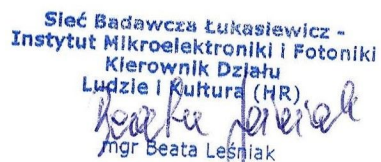 Sieć Badawcza Łukasiewicz -
Instytut Mikroelektroniki i Fotoniki
Kierownik Działu
Ludzie i Kultura (HR)
mgr Beata Leśniak